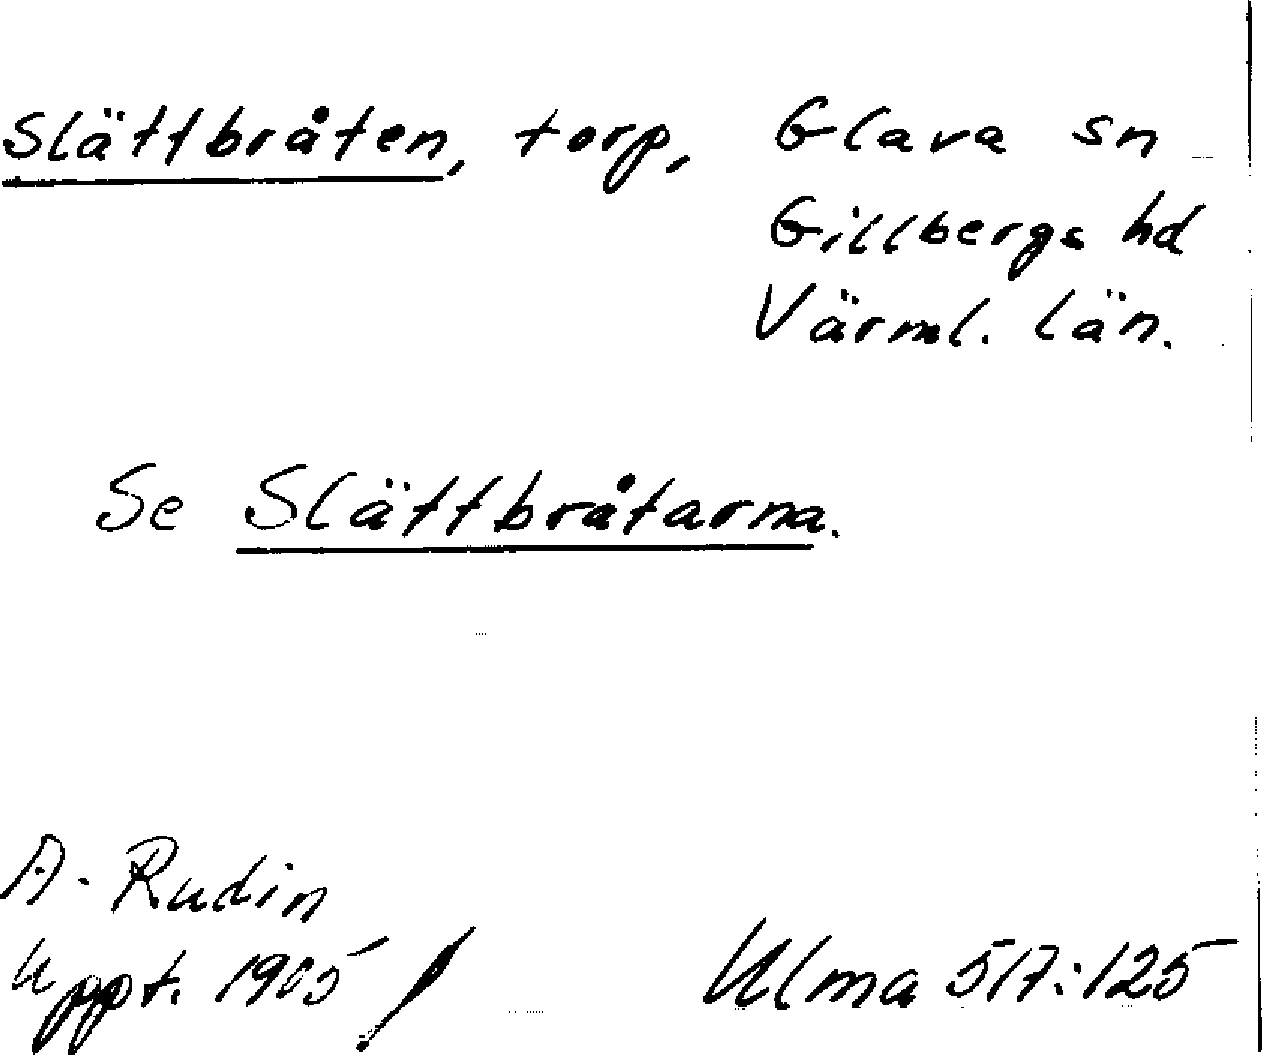 Slättbråten, torp, Glava sn
Gillbergs hd
Värml. län.
Se Slättbråtarna.
A. Rudin
Uppt. 1905
Ulma 517:125